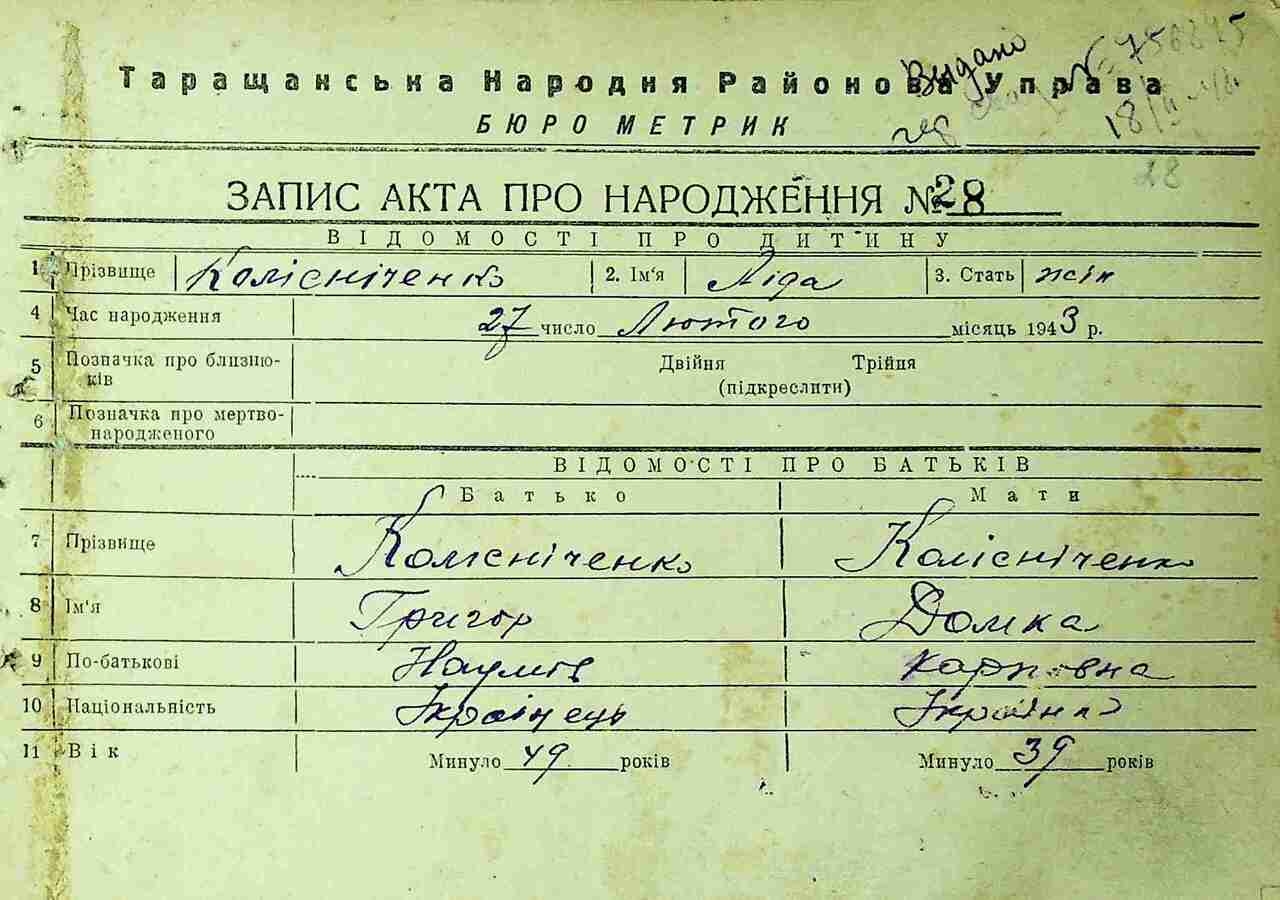 Видано № 758845
18/II-48.
Таращанська Народня Районова Управа
БЮРО МЕТРИК
28
ЗАПИС АКТА ПРО НАРОДЖЕННЯ № 28
ВІДОМОСТІ ПРО ДИТИНУ
1 Прізвище Колісніченко 2. Ім'я Ліда 3. Стать жін
4 Час народження 27 число Лютого місяць 1943 р.
5 Позначка про близню- Двійня Трійня
ків (підкреслити)
6 Позначка про мертво-
народженого
ВІДОМОСТІ ПРО БАТЬКІВ
Батько Мати
7 Прізвище Колісніченко Колісніченко
8 Ім'я Григор Домка
9 По-батькові Наумів Карповна
10 Національність Українець Українка
11 Вік Минуло 49 років Минуло 39 років